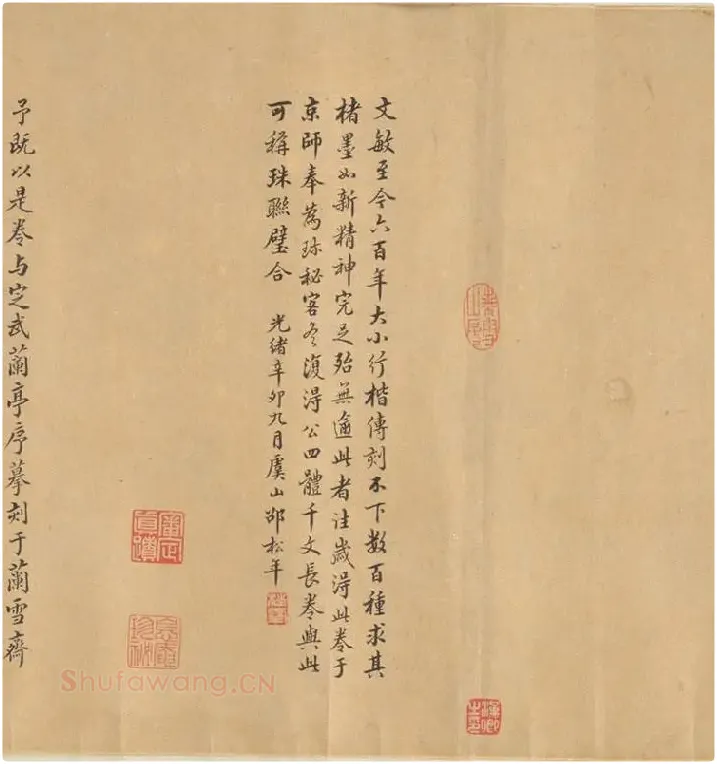 文敏至今六百年大小行楷傳刻不下數百種求其
楮墨如新精神完足殆無逾此者往歲得此卷于
京師奉為珍秘客冬復得公四體千文長卷與此
可稱珠聯璧合 光緒辛卯九月虞山邵松年
予既以是卷与定武蘭亭序摹刻于蘭雪齋
審定真蹟
Shufawang.CN